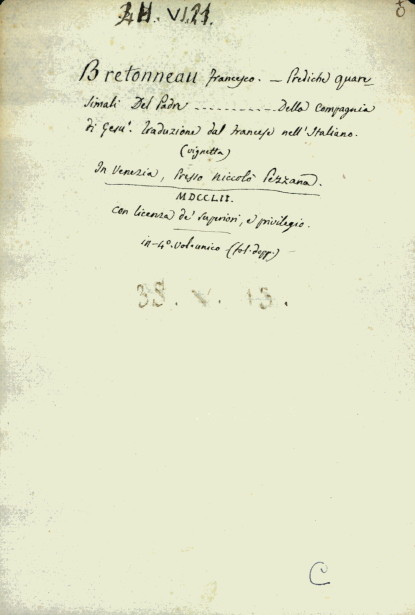 34. VI.21.
Bretonneau Francesco. — Prediche quare-
simali Del Padre ............ Della Compagnia
di Gesu'. Traduzione dal Francese nell'Italiano.
(vignetta)
In Venezia, Presso Niccolò Pezzana.
MDCCLII.
Con licenza de' Superiori, e privilegio.
in-4°. vol. unico - (fol. dopp.)
38. V. 13.
C